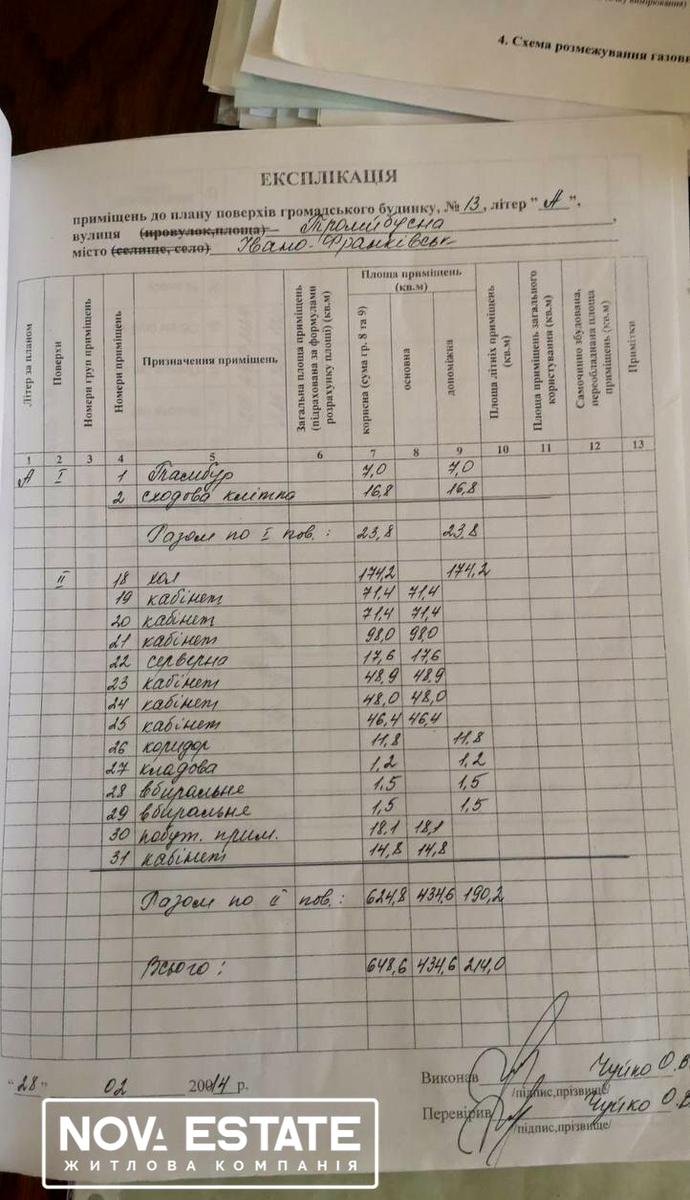 (
вимірювання)
4. Схема розмежування газови
ЕКСПЛІКАЦІЯ
приміщень до плану поверхів громадського будинку, № 13, літер "А",
вулиця (провулок,площа) Тролейбусна
місто (селище, село) Івано-Франківськ
Літер за планом
Поверхи
Номери груп приміщень
Номери приміщень
Призначення приміщень
Загальна площа приміщень (підрахована за формулами розрахунку площі) (кв.м)
Площа приміщень (кв.м)
корисна (сума гр. 8 та 9)
основна
допоміжна
Площа літніх приміщень (кв.м)
Площа приміщень загального користування (кв.м)
Самочинно збудована, переобладнана площа приміщень (кв.м)
Примітки
1 2 3 4 5 6 7 8 9 10 11 12 13
А І 1 Тамбур 7,0 7,0
2 сходова клітка 16,8 16,8
Разом по І пов.: 23,8 23,8
ІІ 18 хол 174,2 174,2
19 кабінет 71,4 71,4
20 кабінет 71,4 71,4
21 кабінет 98,0 98,0
22 серверна 17,6 17,6
23 кабінет 48,9 48,9
24 кабінет 48,0 48,0
25 кабінет 46,4 46,4
26 коридор 11,8 11,8
27 кладова 1,2 1,2
28 вбиральне 1,5 1,5
29 вбиральне 1,5 1,5
30 побут. прим. 18,1 18,1
31 кабінет 14,8 14,8
Разом по ІІ пов.: 624,8 434,6 190,2
Всього: 648,6 434,6 214,0
"28" 02 2014 р.
Виконав Чуйко О.В
/підпис,прізвище/
Перевірив Чуйко О.В
/підпис,прізвище/
NOVA ESTATE
ЖИТЛОВА КОМПАНІЯ